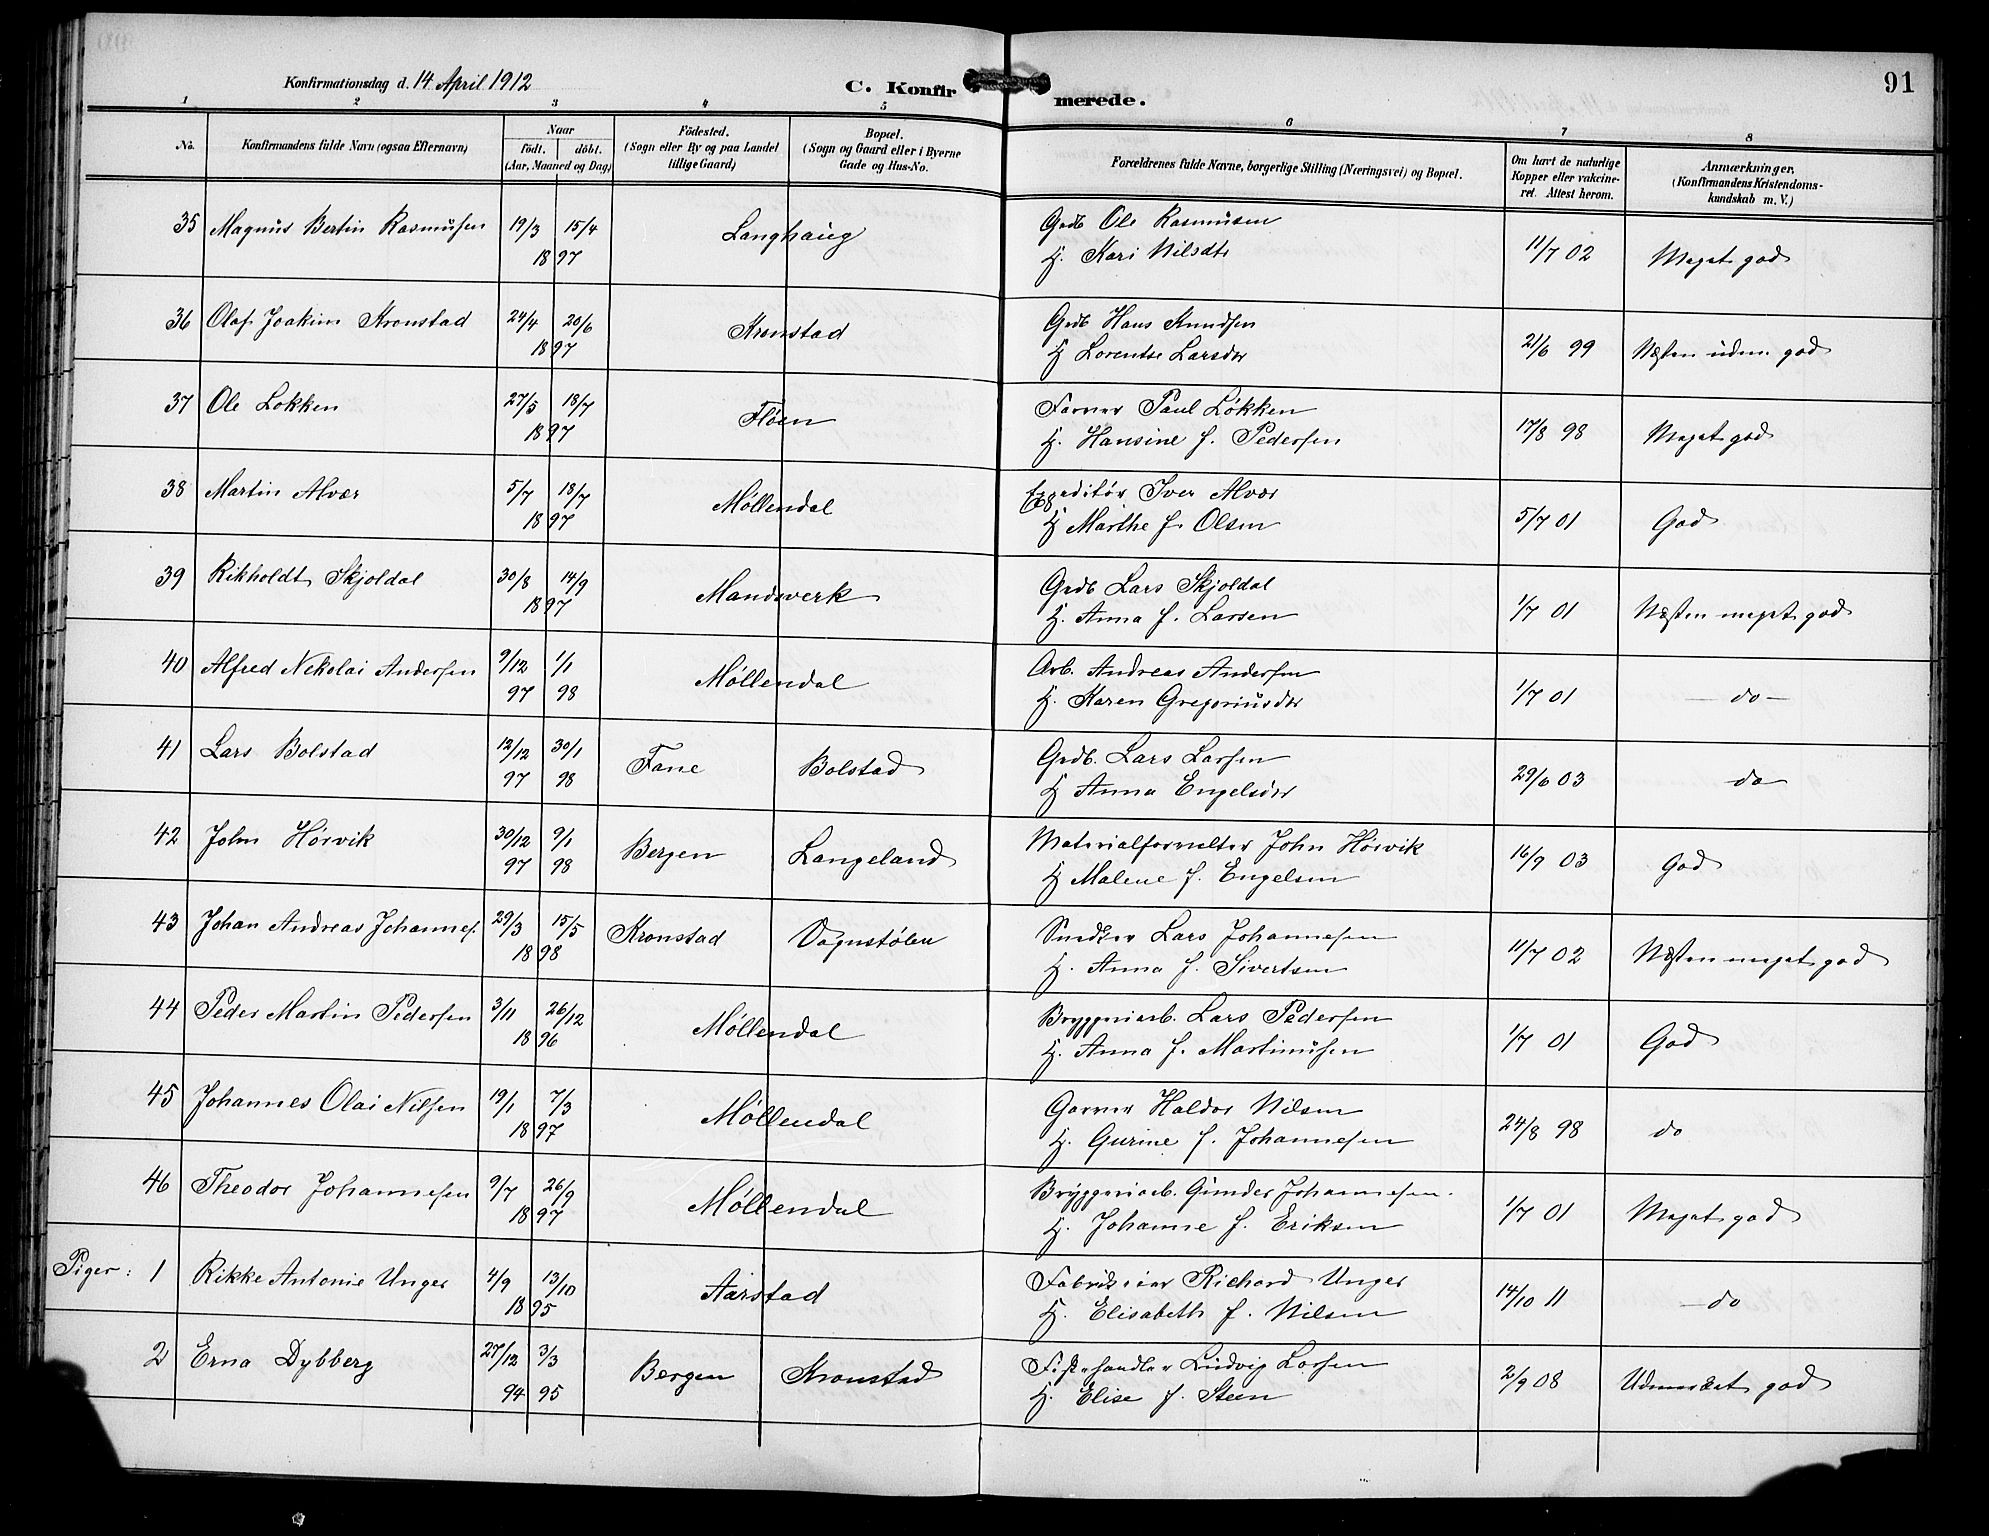 91
Konfirmationsdag d. 14 April 1912
C. Konfirmerede.
1 2 3 4 5 6 7 8
No.
Konfirmandens fulde Navn (ogsaa Efternavn)
Naar
født. døbt.
(Aar, Maaned og Dag)
Födested.
(Sogn eller By og paa Landet
tillige Gaard)
Bopæl.
(Sogn og Gaard eller i Byerne
Gade og Hus-No.
Forældrenes fulde Navne, borgerlige Stilling (Næringsvei) og Bopæl.
Om havt de naturlige
Kopper eller vakcine-
ret. Attest herom.
Anmærkninger,
(Konfirmandens Kristendoms-
kundskab m. V.)
35 Magnus Bertin Rasmusen 19/3 15/4 Langhaug Grdb Ole Rasmusen
1897 H. Kari Nilsdtr 11/7 02 Meget god
36 Olaf Joakim Kronstad 24/4 20/6 Kronstad Grdb Hans Knudsen
1897 H Lorentse Larsdtr 21/6 99 Næsten udm. god
37 Ole Lokken 27/5 18/7 Fløen Farver Paul Løkken
1897 H. Hansine f. Pedersen 17/8 98 Meget god
38 Martin Alvær 5/7 18/7 Møllendal Expeditør Iver Alvær
1897 H Marthe f. Olsen 5/7 01 God
39 Rikholdt Skjoldal 30/8 14/9 Mandsverk Grdb Lars Skjoldal
1897 H. Anna f. Larsen 1/7 01 Næsten meget god
40 Alfred Nekolai Andersen 9/12 1/1 Møllendal Arb. Andreas Andersen
97 98 H. Karen Gregoriusdtr 1/7 01 - do -
41 Lars Bolstad 12/12 30/1 Fane Bolstad Grdb. Lars Larsen
97 98 H Anna Engelsdtr 29/6 03 do
42 John Hörvik 30/12 9/1 Bergen Langeland Materialforvalter John Hörvik
97 98 H Malene f. Engelsen 16/9 03 God
43 Johan Andreas Johannes. 29/3 15/5 Kronstad Vognstølen Snedker Lars Johannesen
1898 H. Anna f. Sivertsen 11/7 02 Næsten meget god
44 Peder Martin Pedersen 3/11 26/12 Møllendal Bryggeriarb. Lars Pedersen
1896 H. Anna f. Martinusen 1/7 01 God
45 Johannes Olai Nilsen 19/1 7/3 Møllendal Garver Haldor Nilsen
1897 H. Gurine f. Johannesen 24/8 98 do
46 Theodor Johannesen 9/7 26/9 Møllendal Bryggeriarb. Gunder Johannesen.
1897 H. Johanne f. Eriksen 1/7 01 Meget god
Piger: 1 Rikke Antonie Unger 4/9 13/10 Aarstad Fabrikeier Richard Unger
1895 H. Elisabeth f. Nilsen 14/10 11 - do
2 Erna Dybberg 27/12 3/3 Bergen Kronstad Fiskehandler Ludvig Larsen
94 95 H. Elise f. Steen 2/9 08 Udmærket god